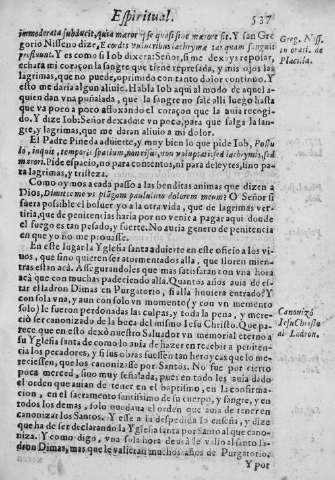 Espiritual. 537
immoderata subducit, quia mæror ipse quasi sine mærore sit. Y san Gre
gorio Nisseno dize, E cordis vulneribus lachrymæ tanquam sanguis
profluunt. Y es como si Iob dixera: Señor, si me dexays reposar,
echarà mi coraçon la sangre que tiene represada, y mis ojos las
lagrimas, que no puede, oprimido con tanto dolor continuo. Y
esto me daria algun aliuio. Habla Iob aqui al modo de aquel a
quien dan vna puñalada, que la sangre no sale alli luego hasta
que va poco a poco afloxando el coraçon que la auia recogi-
do. Y dize Iob: Señor dexadme vn poco, para que salga la san-
gre, y lagrimas, que me daran aliuio a mi dolor.
El Padre Pineda aduierte, y muy bien lo que pide Iob, Postu
lo, inquit, temporis spatium, non risui, non voluptati, sed lachrymis, sed
mærori. Pide espacio, no para contentos, ni para deleytes, sino pa-
ra lagrimas, y tristeza.
Como oymos a cada passo a las benditas animas que dizen a
Dios, Dimitte me vt plãgam paululum dolorem meum? O Señor si
fuera possible el boluer yo a la otra vida, que de lagrimas ver-
tiria, que de penitencias haria por no venir a pagar aqui donde
el fuego es tan pesado, y fuerte. No auria genero de penitencia
en que yo no me prouasse.
En este lugar la Yglesia santa aduierte en este oficio a los vi-
uos, que sino quieren ser atormentados alla, que lloren mien-
tras estan acá. Assegurandoles que mas satisfaran con vna hora
acà que con muchas padeciendo alla. Quantos años auia de es-
tar el ladron Dimas en Purgatorio, si alla huuiera entrado? Y
con sola vna, y aun con solo vn momento (y con vn memento
solo) le fueron perdonadas las culpas, y toda la pena, y mere-
ciò ser canonizado de la boca del mismo Iesu Christo. Que pa-
rece que en esto dexò nuestro Saluador vn memorial eterno a
su Yglesia santa de como lo auia de hazer en recebir a peniten-
cia los pecadores, y si sus obras fuessen tan heroycas que lo me-
reciessen, que los canonizasse por Santos. No fue por cierto
poca merced, sino muy señalada, pues en todo les auia dado
el orden que auian de tener en el baptismo, en la confirma-
cion, en el sacramento santissimo de su cuerpo, y sangre, y en
todos los demas, solo quedaua el orden que auia de tener en
canonizar los Santos. Y esse a la despedida lo enseña, y dize
que ha de ser declarando la Yglesia santa por Santo al que cano-
niza. Y como digo, vna sola hora deuiò de valio al santo la-
dron Dimas, mas que le valieran muchos años de Purgatorio.
Y por
Greg. Niss.
in orati. de
Placilla.
Canonizó
Iesu Christo
al Ladron.